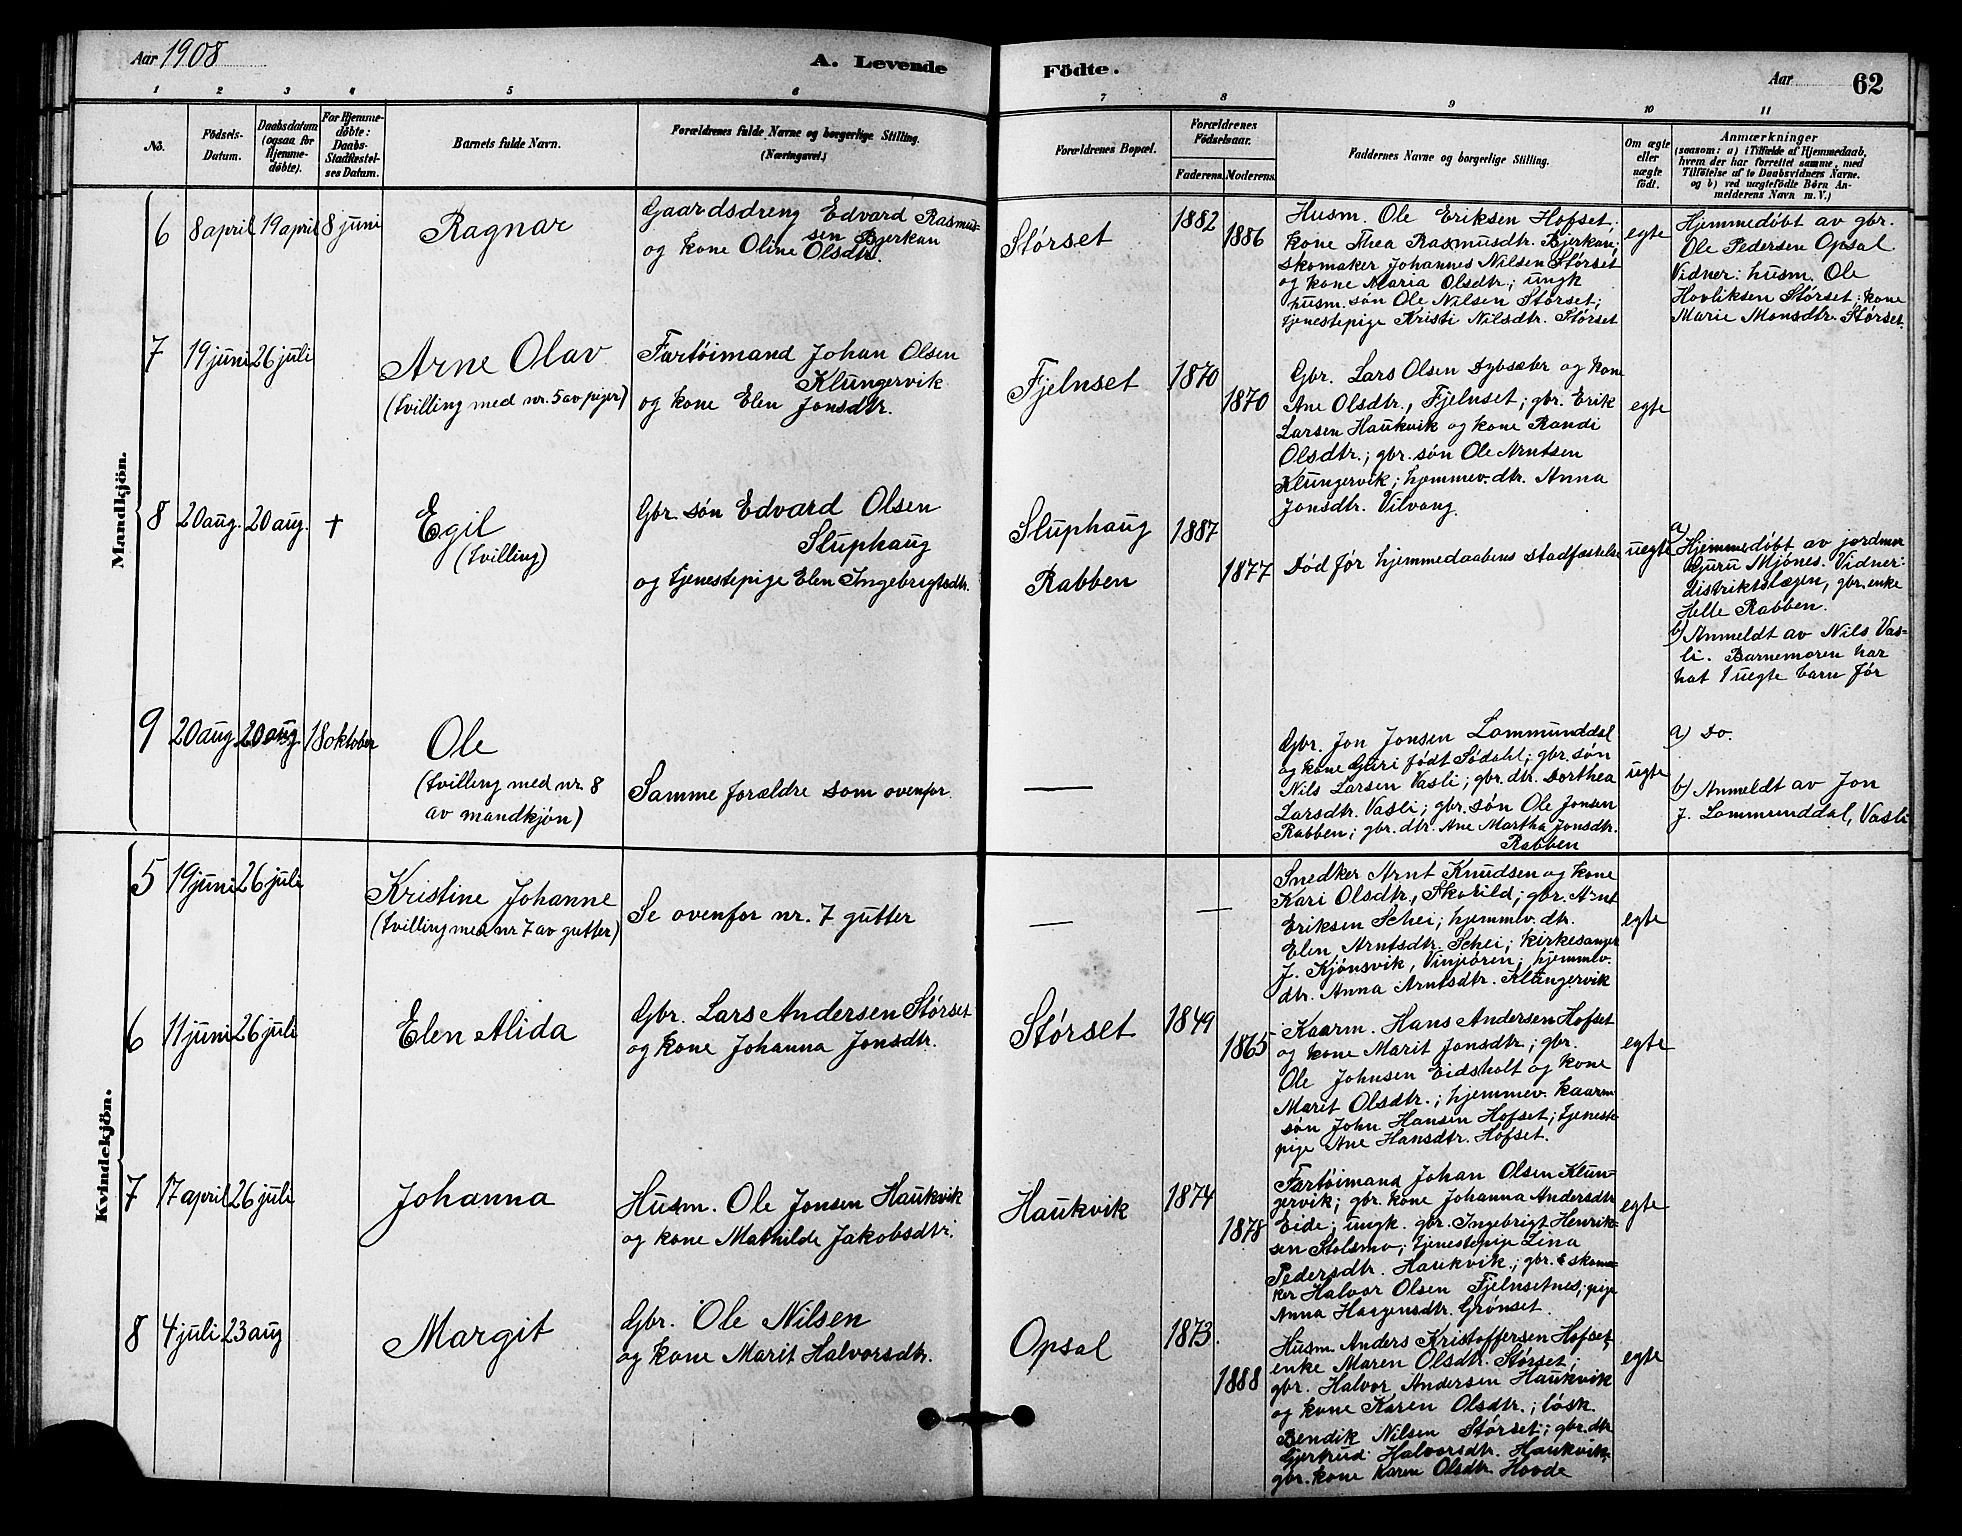 Aar 1908
A. Levende
Fødte.
Aar
62
1
2
3
4
5
6
7
8
9
10
11
No.
Fødsels-
Datum.
Daabsdatum
(ogsaa for
Hjemme-
døbte).
For Hjemme-
døbte:
Daabs-
Stadfæstel-
ses Datum.
Barnets fulde Navn.
Forældrenes fulde Navne og borgerlige Stilling.
(Næringsvei.)
Forældrenes Bopæl.
Forældrenes
Fødselsaar.
Faderens.
Moderens.
Faddernes Navne og borgerlige Stilling.
Om ægte
eller
uægte
født.
Anmærkninger
(saasom: a) i Tilfælde af Hjemmedaab,
hvem der har forrettet samme, med
Tilføielse af to Daabsvidners Navne.
og b) ved uægtefødte Børn An-
melderens Navn m. V.)
Mandkjön.
6
8 april
19 april
8 juni
Ragnar
Gaardsdreng Edvard Rasmus-
sen Bjerkan
og kone Oline Olsdtr.
Størset
1882
1886
Husm. Ole Eriksen Hofset;
kone Thea Rasmusdtr. Bjerkan;
skomaker Johannes Nilsen Størset
og kone Maria Olsdtr; ungk
husm. søn Ole Nilsen Størset;
tjenestepige Kristi Nilsdtr. Størset
egte
Hjemmedøbt av gbr.
Ole Pedersen Opsal
Vidner: husm. Ole
Hovliksen Størset; kone
Marie Monsdtr. Størset.
7
19 juni
26 juli
Arne Olav
(tvilling med nr. 5 av piger)
Fartøimand Johan Olsen
Klungervik
og kone Elen Jonsdtr.
Fjelnset
1870
1870
Gbr. Lars Olsen Dybsæter og kone
Ane Olsdtr., Fjelnset; gbr. Erik
Larsen Haukvik og kone Randi
Olsdtr.; gbr. søn Ole Arntsen
Klungervik; hjemmev. dtr. Anna
Jonsdtr. Vilvang.
egte
8
20 aug.
20 aug.
+
Egil
(tvilling)
Gbr. søn Edvard Olsen
Sluphaug
og tjenestepige Elen Ingebrigtsdtr.
Sluphaug
Rabben
1887
1877
Død før hjemmedaabens stadfæstelse
uegte
a)
Hjemmedøbt av jordmor
Guru Mjønes. Vidner:
distriktslægen, gbr. enke
Helle Rabben.
b) Anmeldt av Nils Vas-
li. Barnemoren har
hat 1 uegte barn før
9
20 aug
20 aug
18 oktober
Ole
(tvilling med nr. 8
av mandkjøn)
Samme forældre som ovenfor.
—
Gbr. Jon Jonsen Lommunddal
og kone Guri født Sødahl; gbr. søn
Nils Larsen Vasli; gbr. dtr. Dorthea
Larsdtr. Vasli; gbr. søn Ole Jonsen
Rabben; gbr. dtr. Ane Martha Jonsdtr.
Rabben
uegte
a) Do.
b) Anmeldt av Jon
J. Lommunddal, Vasli
Kvindekjön.
5
19 juni
26 juli
Kristine Johanne
(tvilling med nr 7 av gutter)
Se ovenfor nr. 7 gutter
—
—
Snedker Arnt Knudsen og kone
Kari Olsdtr., Skorild; gbr. Arnt
Eriksen Schei; hjemmev. dtr.
Elen Arntsdtr. Schei; kirkesanger
J. Kjønsvik, Vinjeøren; hjemmev.
dtr. Anna Arntsdtr. Klungervik
egte
6
11 juni
26 juli
Elen Alida
Gbr. Lars Andersen Størset
og kone Johanna Jonsdtr.
Størset
1849
1865
Kaarm. Hans Andersen Hofset
og kone Marit Jonsdtr; gbr.
Ole Johnsen Eidsholt og kone
Marit Olsdtr.; hjemmev. kaarm
søn John Hansen Hofset; tjeneste-
pige Ane Hansdtr. Hofset.
egte
7
17 april
26 juli
Johanna
Husm. Ole Jonsen Haukvik
og kone Mathilde Jakobsdtr.
Haukvik
1874
1878
Fartøimand Johan Olsen Klun-
gervik; gbr. kone Johanna Andersdtr
Eide; ungk. gbr. Ingebrigt Henrik-
sen Stolsmo; tjenestepige Lina
Pedersdtr. Haukvik; gbr. & skoma-
ker Halvor Olsen Fjelnsetnes; pige
Anna Haagensdtr. Grønset.
egte
8
4 juli
23 aug
Margit
Gbr. Ole Nilsen
og kone Marit Halvorsdtr.
Opsal
1873
1888
Husm. Anders Kristoffersen Hofset,
enke Maren Olsdtr. Størset;
gbr. Halvor Andersen Haukvik
og kone Karen Olsdtr.; løsk.
Bendik Nilsen Størset; gbr. dtr
Gjertrud Halvorsdtr. Haukvik,
gbr. kone Karen Olsdtr. Hovde
egte